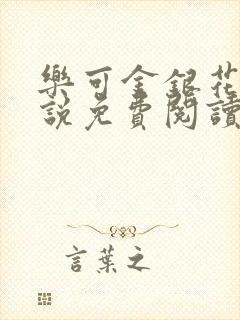 樂可金銀花
說免費閱讀
言葉之